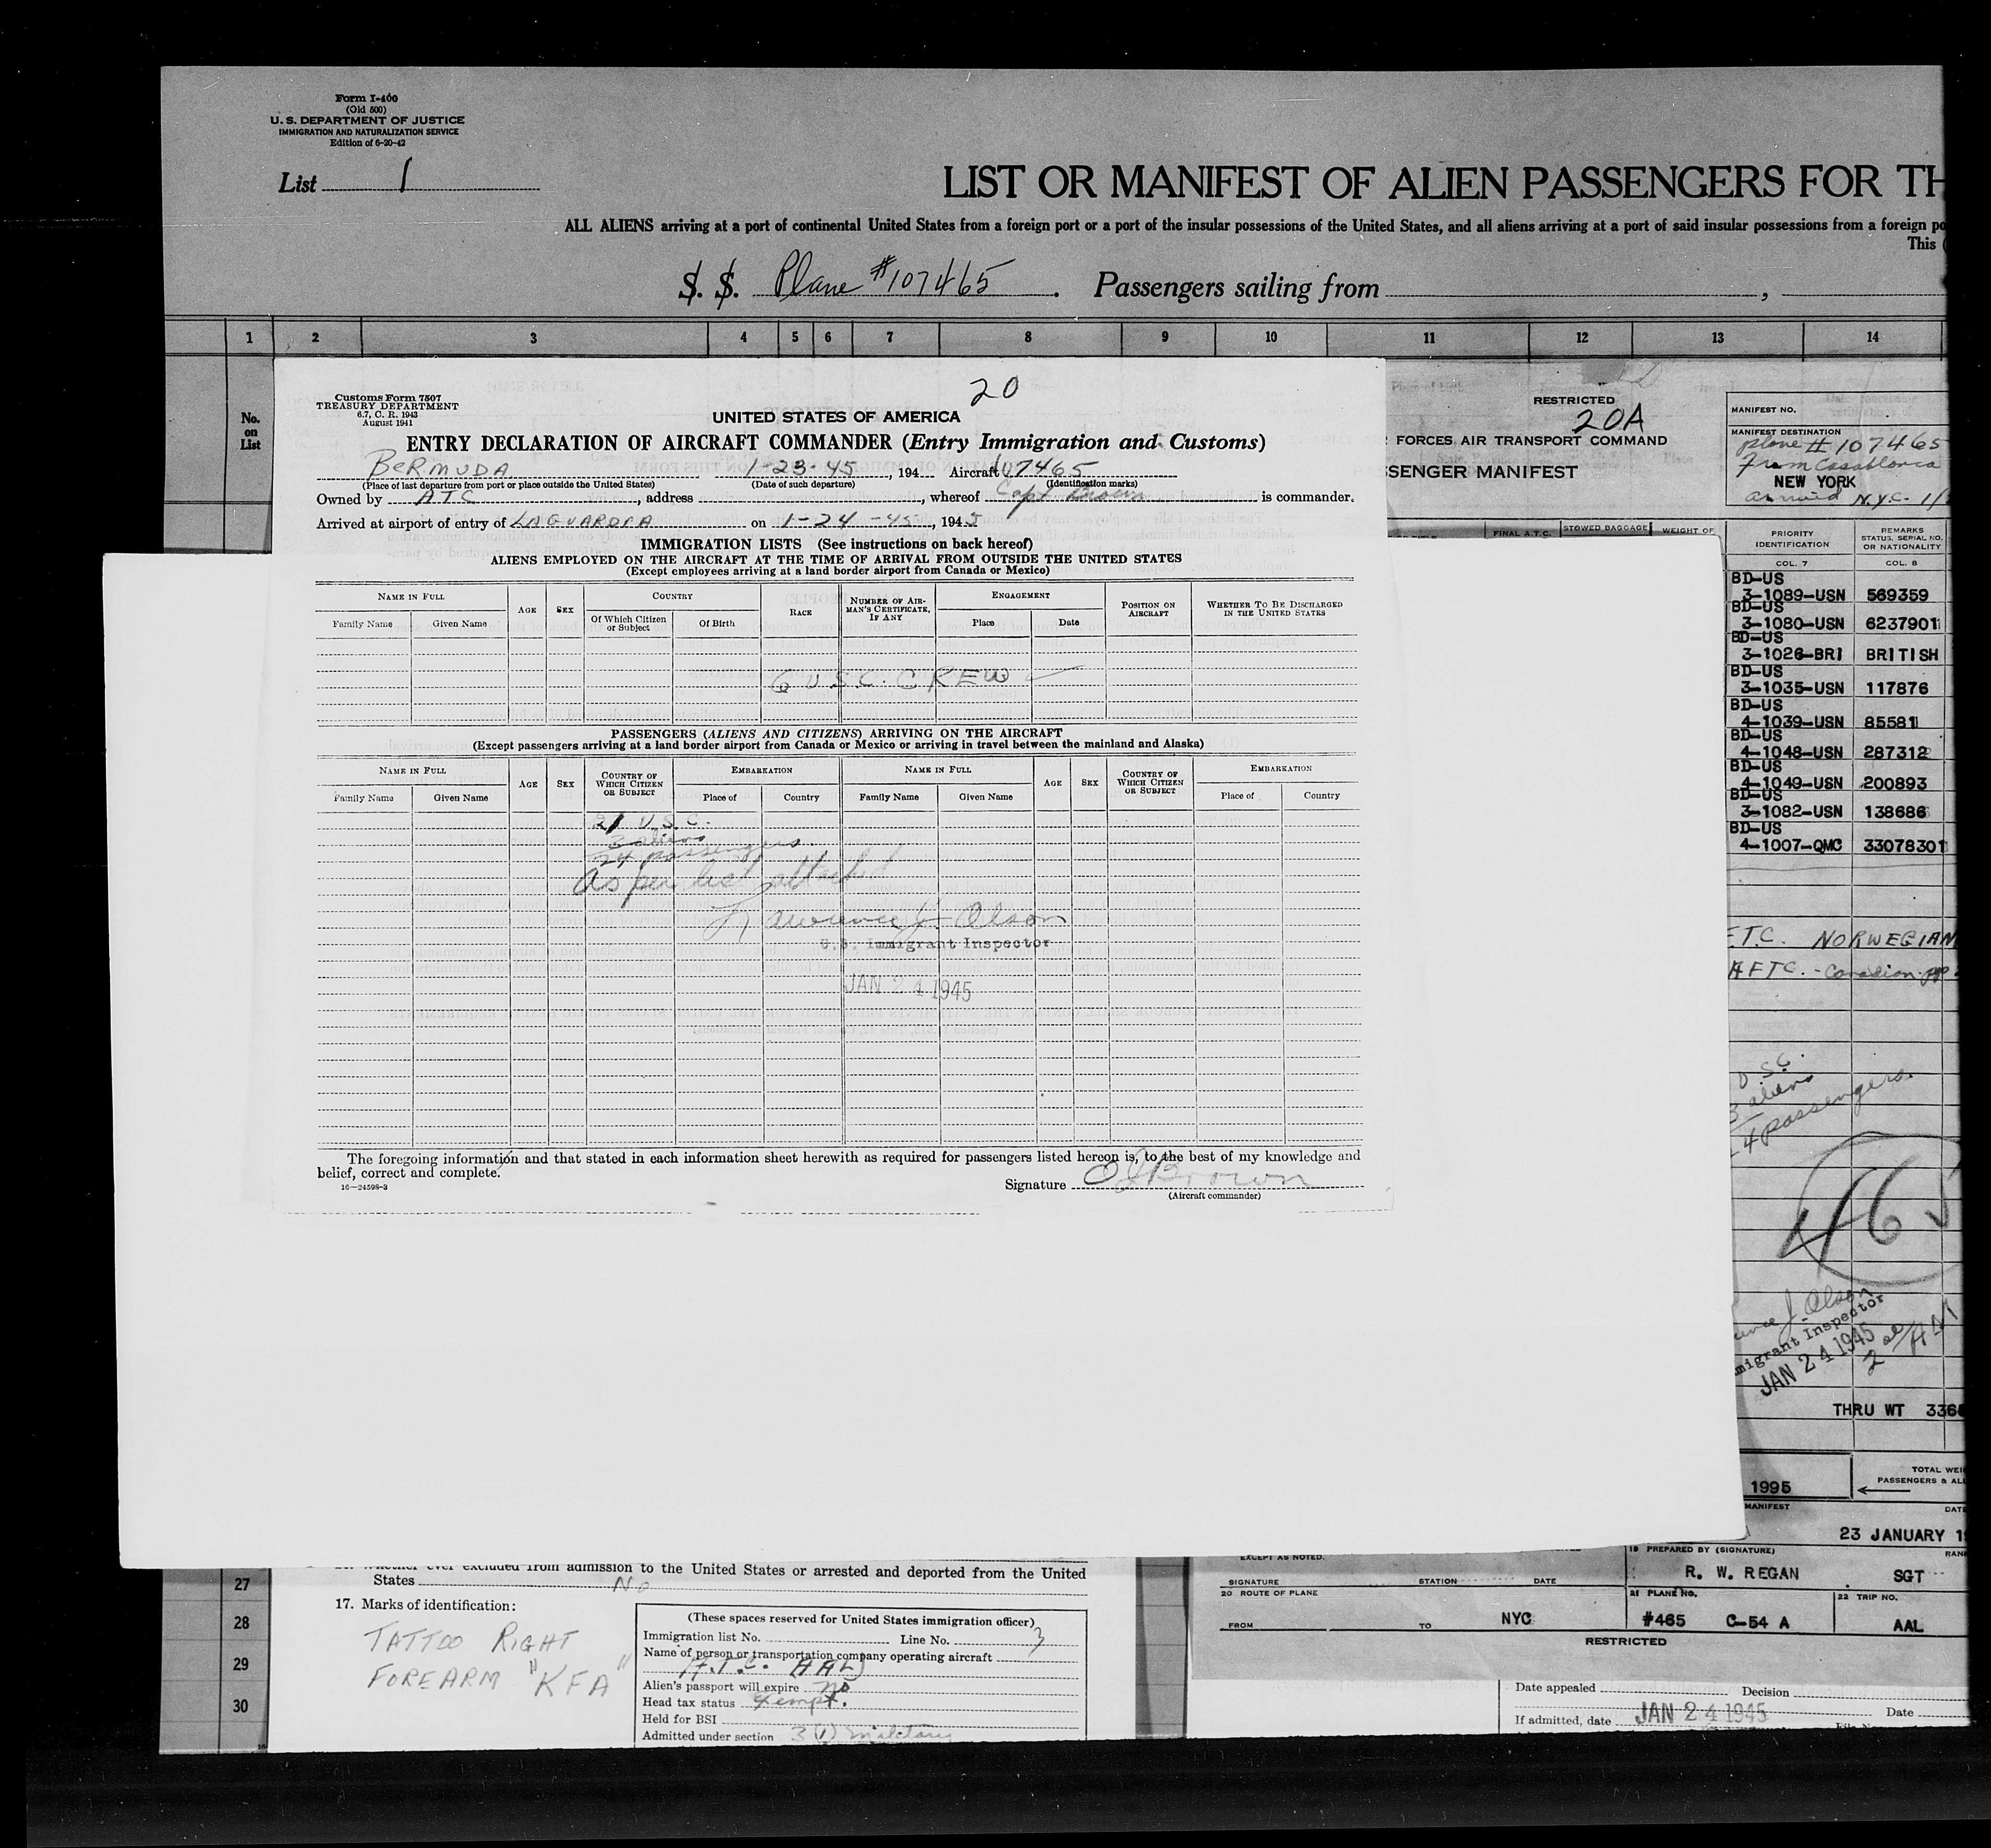 Form I-400
(Old 500)
U. S. DEPARTMENT OF JUSTICE
IMMIGRATION AND NATURALIZATION SERVICE
Edition of 6-20-42
List 1
LIST OR MANIFEST OF ALIEN PASSENGERS FOR TH
ALL ALIENS arriving at a port of continental United States from a foreign port or a port of the insular possessions of the United States, and all aliens arriving at a port of said insular possessions from a foreign po
This (
S. S. Plane #107465. Passengers sailing from ,
1 2 3 4 5 6 7 8 9 10 11 12 13 14
No.
on
List
20
Customs Form 7507
TREASURY DEPARTMENT
6.7, C. R. 1943
August 1941
UNITED STATES OF AMERICA
ENTRY DECLARATION OF AIRCRAFT COMMANDER (Entry Immigration and Customs)
BERMUDA 1-23-45, 194 Aircraft 107465
(Place of last departure from port or place outside the United States) (Date of such departure) (Identification marks)
Owned by ATC, address , whereof Capt Brown is commander.
Arrived at airport of entry of LAGUARDIA on 1-24-45, 1945
IMMIGRATION LISTS (See instructions on back hereof)
ALIENS EMPLOYED ON THE AIRCRAFT AT THE TIME OF ARRIVAL FROM OUTSIDE THE UNITED STATES
(Except employees arriving at a land border airport from Canada or Mexico)
NAME IN FULL AGE SEX COUNTRY RACE NUMBER OF AIRMAN'S CERTIFICATE, IF ANY ENGAGEMENT POSITION ON AIRCRAFT WHETHER TO BE DISCHARGED IN THE UNITED STATES
Family Name Given Name Of Which Citizen or Subject Of Birth Place Date
6 U.S.C. CREW
PASSENGERS (ALIENS AND CITIZENS) ARRIVING ON THE AIRCRAFT
(Except passengers arriving at a land border airport from Canada or Mexico or arriving in travel between the mainland and Alaska)
NAME IN FULL AGE SEX COUNTRY OF WHICH CITIZEN OR SUBJECT EMBARKATION NAME IN FULL AGE SEX COUNTRY OF WHICH CITIZEN OR SUBJECT EMBARKATION
Family Name Given Name Place of Country Family Name Given Name Place of Country
21 U.S.C.
3 aliens
24 passengers
As per list attached
Lawrence J. Olson
U.S. Immigrant Inspector
JAN 24 1945
The foregoing information and that stated in each information sheet herewith as required for passengers listed hereon is, to the best of my knowledge and
belief, correct and complete.
16—24598-3
Signature Brown
(Aircraft commander)
RESTRICTED
20A
FORCES AIR TRANSPORT COMMAND
SSENGER MANIFEST
MANIFEST NO.
MANIFEST DESTINATION
plane # 107465
from Casablanca
NEW YORK
arrived N.Y.C. 1/
FINAL A.T.C. STOWED BAGGAGE WEIGHT OF
PRIORITY IDENTIFICATION REMARKS STATUS, SERIAL NO. OR NATIONALITY
COL. 7 COL. 8
BD-US
3-1089-USN 569359
BD-US
3-1080-USN 6237901
BD-US
3-1026-BRI BRITISH
BD-US
3-1035-USN 117876
BD-US
4-1039-USN 85581
BD-US
4-1048-USN 287312
BD-US
4-1049-USN 200893
BD-US
3-1082-USN 138686
BD-US
4-1007-QMC 33078301
T.C. NORWEGIAN
AFTC. - Canadian
U.S.C.
3 aliens
4 passengers.
465
J. Olson
migrant Inspector
JAN 24 1945
THRU WT 336
1995
TOTAL WEI
PASSENGERS & AL
MANIFEST
DATE
23 JANUARY 19
EXCEPT AS NOTED.
SIGNATURE STATION DATE
19 PREPARED BY (SIGNATURE) RAN
R. W. REGAN SGT
20 ROUTE OF PLANE 21 PLANE NO. 22 TRIP NO.
FROM TO NYC #465 C-54 A AAL
RESTRICTED
Date appealed Decision
If admitted, date JAN 24 1945 Date
27
28
29
30
whether ever excluded from admission to the United States or arrested and deported from the United
States No
17. Marks of identification:
TATTOO RIGHT
FOREARM "KFA"
(These spaces reserved for United States immigration officer)
Immigration list No. Line No. 3
Name of person or transportation company operating aircraft
A.T.C. (AAL)
Alien's passport will expire no
Head tax status Exempt.
Held for BSI
Admitted under section 3(1) military